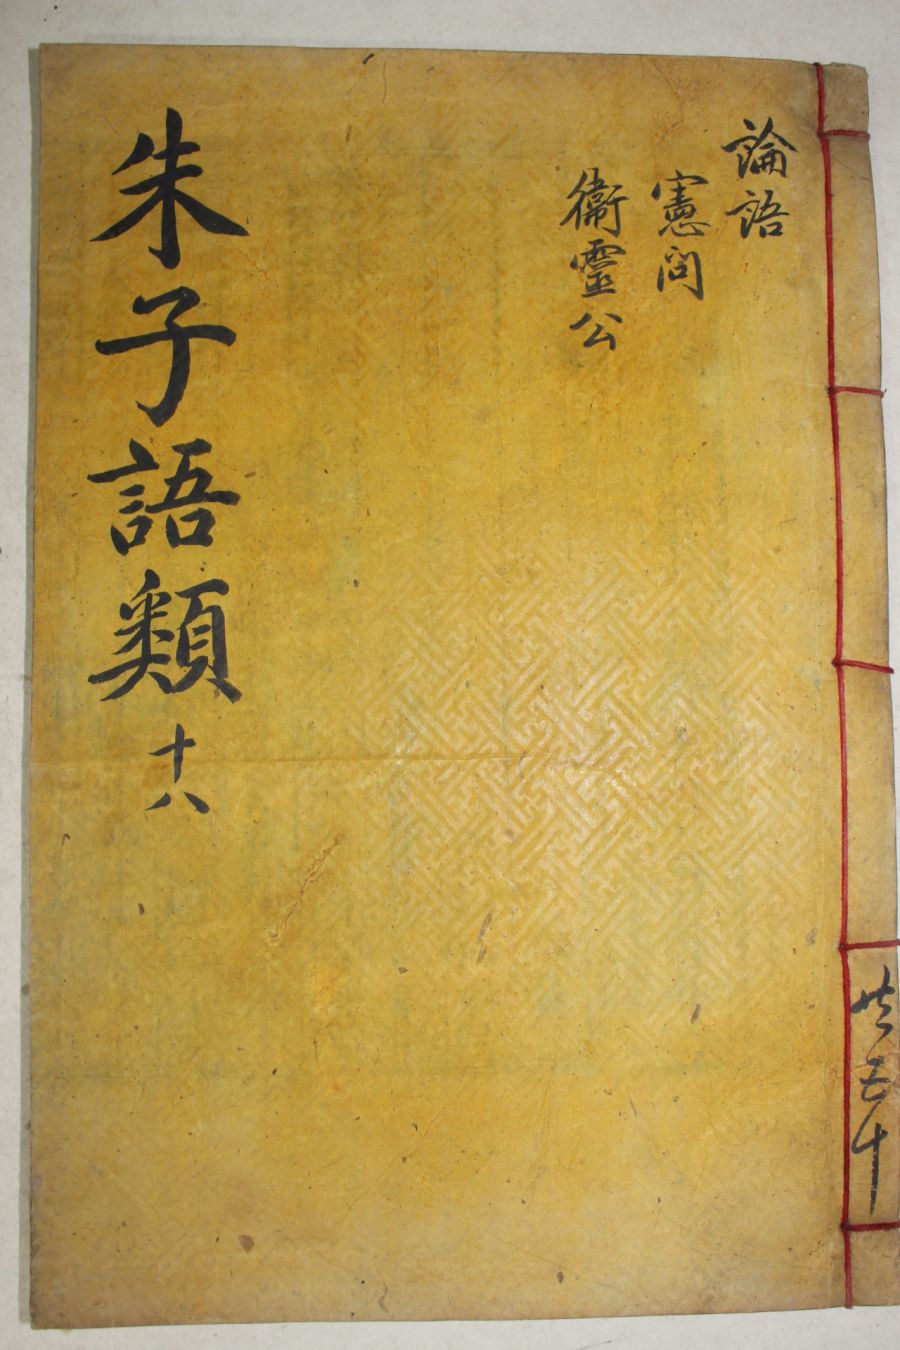 論語
憲問
衛靈公
朱子語類 十八
共五十